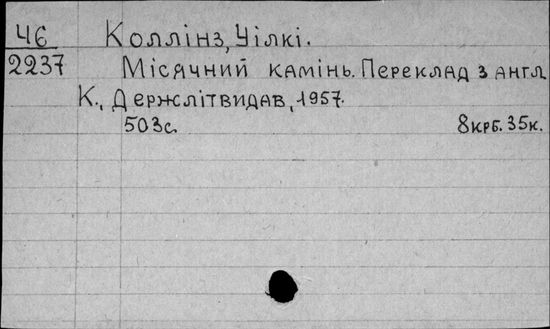 Ч6
2237
Коллінз, Уілкі.
Місячний камінь. Переклад з англ
К., Держлітвидав, 1957.
503с. 8крб. 35к.